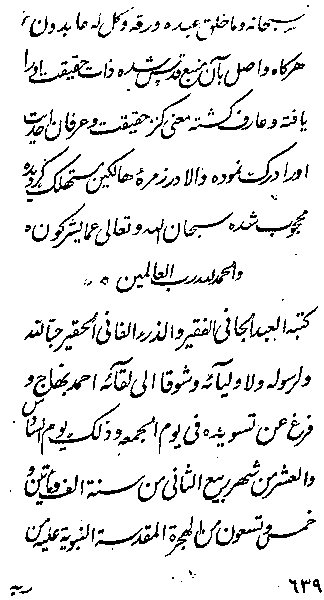 سبحانه وما خلق عبده ورقه وكل له عابدون
هرگاه واصل بآن منبع قدس شده ذات حقیقت او را
یافته و عارف گشته معنی کنز حقیقت و عرفان احدیت
او را درک نموده والا در زمرهٔ هالکین مستهلک گردیده
محجوب شده سبحان الله وتعالی عما یشرکون
والحمد لله رب العالمین
کتبه العبد الجانی الفقیر والذرء الفانی الحقیر حبا لله
ولرسوله ولاولیآئه وشوقا الی لقآئه احمد
فرغ عن تسویده فی یوم الجمعه وذلک یوم السادس
والعشر من شهر ربیع الثانی من سنة الف وماتین و
خمس وتسعون من الهجرة المقدسة النبویة علیه من
٦٣٩